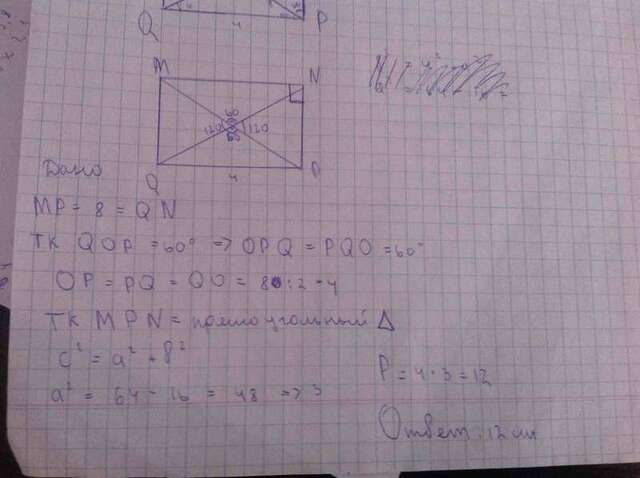 Q 4 P
M N
60
120 120
60
Q 4 P
Дано
MP = 8 = QN
ТК QOP = 60° => OPQ = PQO = 60°
OP = PQ = QO = 8 : 2 = 4
ТК MPN = прямоугольный Δ
c² = a² + b²
a² = 64 - 16 = 48 =>
P = 4 · 3 = 12
Ответ: 12 см